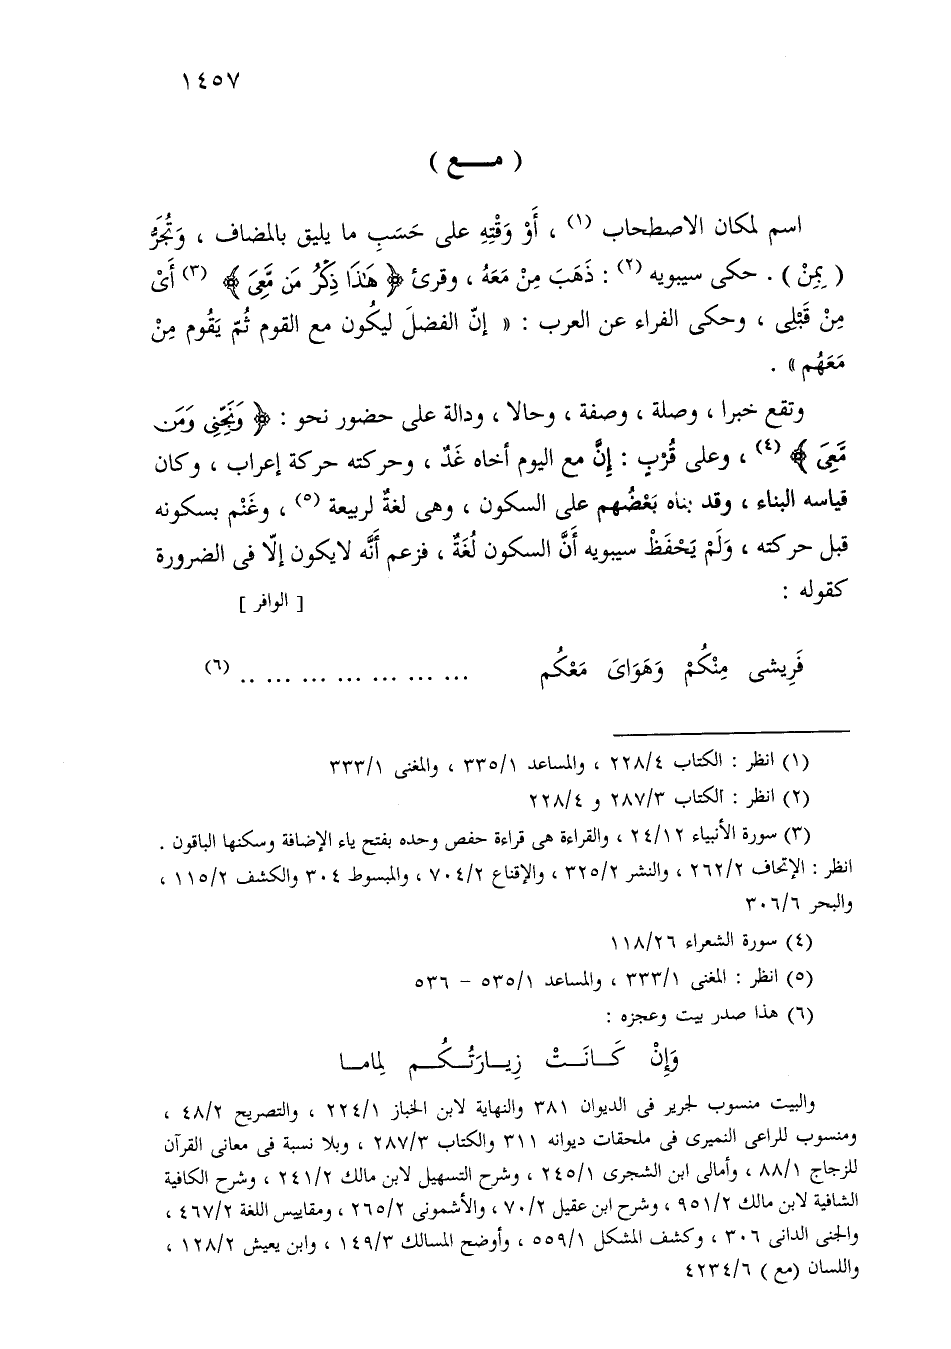 ١٤٥٧
( مـــع )
اسم لمكان الاصطحاب (١) ، أَوْ وَقْتِهِ على حَسَبِ ما يليق بالمضاف ، وَتُجَرُّ
( بِمِنْ ) . حكى سيبويه (٢) : ذَهَبَ مِنْ مَعَهُ ، وقرئ ﴿ هَٰذَا ذِكْرُ مَن مَّعِىَ ﴾ (٣) أَىْ
مِنْ قَبْلِى ، وحكى الفراء عن العرب : « إنّ الفضلَ ليكُون مع القوم ثُمّ يَقُوم مِنْ
مَعَهُم » .
وتقع خبرا ، وصلة ، وصفة ، وحالا ، ودالة على حضور نحو : ﴿ وَنَجِّنِى وَمَن
مَّعِىَ ﴾ (٤) ، وعلى قُرْبٍ : إنَّ مع اليوم أخاه غَدٌ ، وحركته حركة إعراب ، وكان
قياسه البناء ، وقد بناه بَعْضُهم على السكون ، وهى لغةٌ لربيعة (٥) ، وغَنْم بسكونه
قبل حركته ، وَلَمْ يَحْفَظْ سيبويه أَنَّ السكون لُغَةٌ ، فزعم أَنَّه لايكون إلّا فى الضرورة
كقوله : [ الوافر ]
فَرِيشى مِنْكُمْ وَهَوَاىَ مَعْكُم ... ... ... ... ... ... .. (٦)
(١) انظر : الكتاب ٢٢٨/٤ ، والمساعد ٣٣٥/١ ، والمغنى ٣٣٣/١
(٢) انظر : الكتاب ٢٨٧/٣ و ٢٢٨/٤
(٣) سورة الأنبياء ٢٤/١٢ ، والقراءة هى قراءة حفص وحده بفتح ياء الإضافة وسكنها الباقون .
انظر : الإتحاف ٢٦٢/٢ ، والنشر ٣٢٥/٢ ، والإقناع ٧٠٤/٢ ، والمبسوط ٣٠٤ والكشف ١١٥/٢ ،
والبحر ٣٠٦/٦
(٤) سورة الشعراء ١١٨/٢٦
(٥) انظر : المغنى ٣٣٣/١ ، والمساعد ٥٣٥/١ – ٥٣٦
(٦) هذا صدر بيت وعجزه :
وَإِنْ كَــانَـتْ زِيـارَتُـكُـم لِمامـا
والبيت منسوب لجرير فى الديوان ٣٨١ والنهاية لابن الخباز ٢٢٤/١ ، والتصريح ٤٨/٢ ،
ومنسوب للراعى النميرى فى ملحقات ديوانه ٣١١ والكتاب ٢٨٧/٣ ، وبلا نسبة فى معانى القرآن
للزجاج ٨٨/١ ، وأمالى ابن الشجرى ٢٤٥/١ ، وشرح التسهيل لابن مالك ٢٤١/٢ ، وشرح الكافية
الشافية لابن مالك ٩٥١/٢ ، وشرح ابن عقيل ٧٠/٢ ، والأشمونى ٢٦٥/٢ ، ومقاييس اللغة ٤٦٧/٢ ،
والجنى الدانى ٣٠٦ ، وكشف المشكل ٥٥٩/١ ، وأوضح المسالك ١٤٩/٣ ، وابن يعيش ١٢٨/٢ ،
واللسان (مع ) ٤٢٣٤/٦